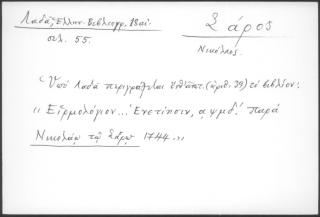 Λαδᾶ, Ἑλλην. Βιβλιογρ. 18 αἰ.
σελ. 55.
Σάρος
Νικόλαος.
Ὑπὸ Λαδᾶ περιγράφεται (ἀριθ. 39) τὸ βιβλίον:
"Εἱρμολόγιον... Ἐνετίησιν, αψμδ΄. παρὰ
Νικολάῳ τῷ Σάρῳ 1744."